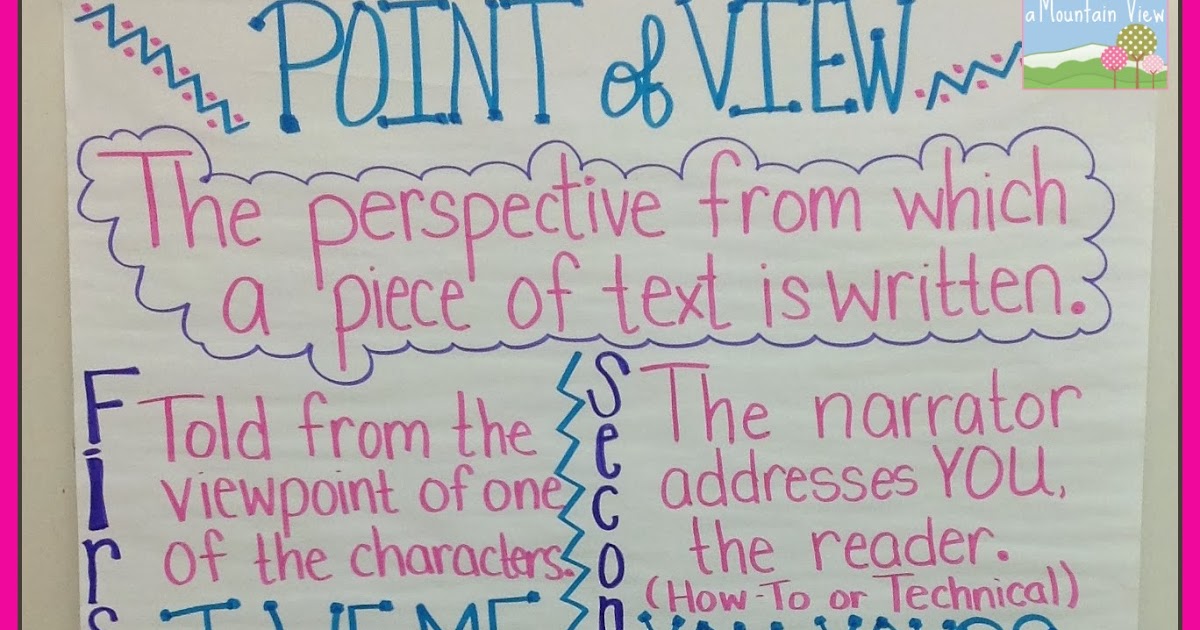 a Mountain View
POINT of VIEW
The perspective from which
a piece of text is written.
Firs
Told from the
viewpoint of one
of the characters.
Secon
The narrator
addresses YOU,
the reader.
(How-To or Technical)